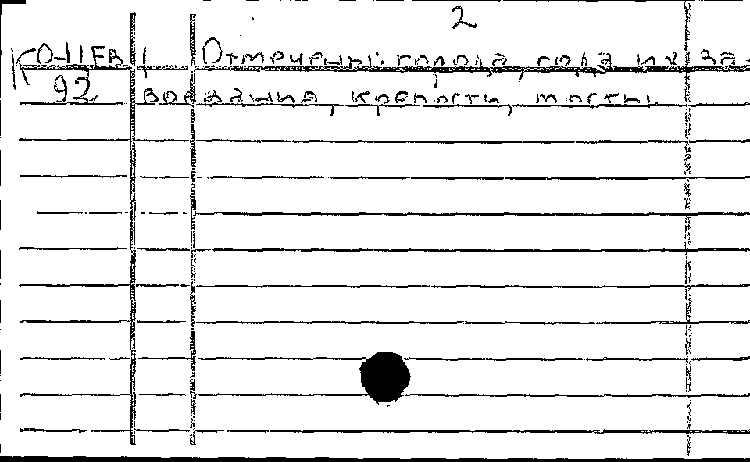 2
Ко-11 ЕВ Отмечены: города, года их за-
92 воевания, крепости, мосты.